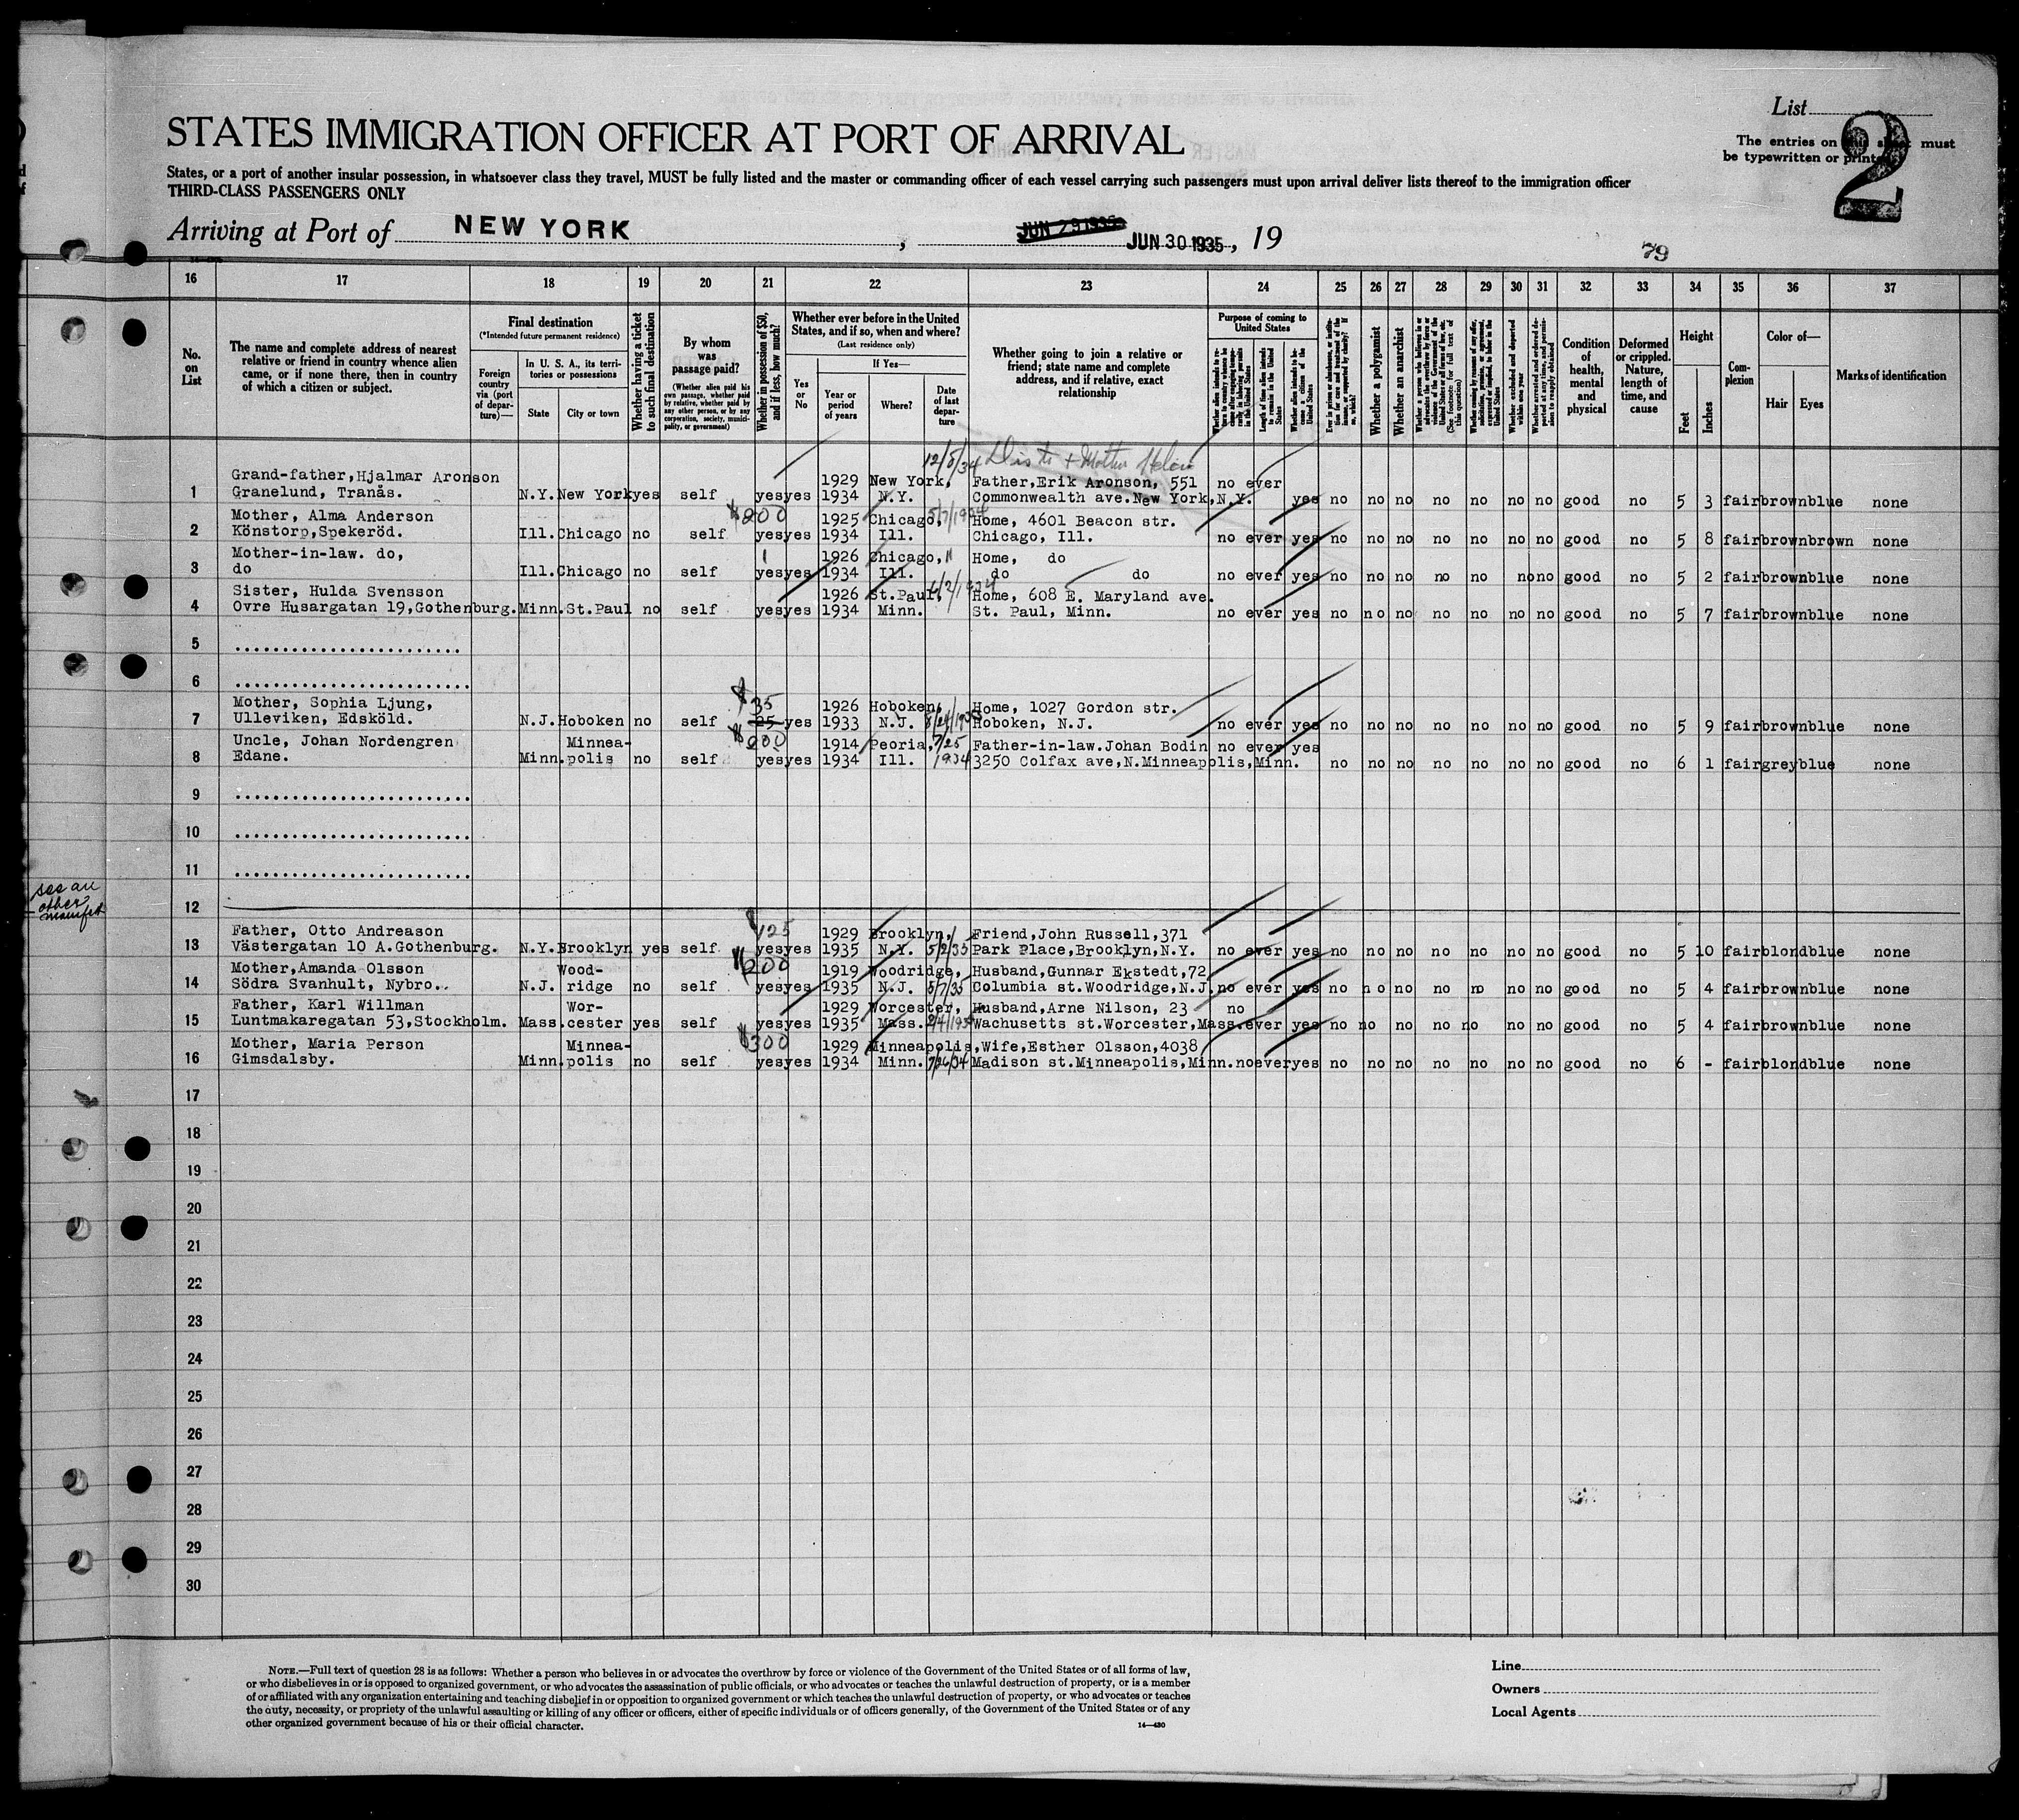 List
2
The entries on this sheet must
be typewritten or printed
STATES IMMIGRATION OFFICER AT PORT OF ARRIVAL
States, or a port of another insular possession, in whatsoever class they travel, MUST be fully listed and the master or commanding officer of each vessel carrying such passengers must upon arrival deliver lists thereof to the immigration officer
THIRD-CLASS PASSENGERS ONLY
Arriving at Port of NEW YORK, JUN 29 1935 JUN 30 1935, 19
79
16 17 18 19 20 21 22 23 24 25 26 27 28 29 30 31 32 33 34 35 36 37
No. on List
The name and complete address of nearest relative or friend in country whence alien came, or if none there, then in country of which a citizen or subject.
Final destination
(*Intended future permanent residence)
Foreign country via (port of departure)—
In U. S. A., its territories or possessions
State
City or town
Whether having a ticket to such final destination
By whom was passage paid?
(Whether alien paid his own passage, whether paid by relative, whether paid by any other person, or by any corporation, society, municipality, or government)
Whether in possession of $50, and if less, how much?
Whether ever before in the United States, and if so, when and where?
(Last residence only)
Yes or No
If Yes—
Year or period of years
Where?
Date of last departure
Whether going to join a relative or friend; state name and complete address, and if relative, exact relationship
Purpose of coming to United States
Whether a polygamist
Whether an anarchist
(See footnote for full text of this question)
Condition of health, mental and physical
Deformed or crippled. Nature, length of time, and cause
Height
Feet
Inches
Complexion
Color of—
Hair
Eyes
Marks of identification
12/5/34
Grand-father,Hjalmar Aronson 1929 New York, Father,Erik Aronson, 551 no ever
1 Granelund, Tranås. N.Y. New York yes self yes yes 1934 N.Y. Commonwealth ave.New York,N.Y. yes no no no no no no no good no 5 3 fair brown blue none
Mother, Alma Anderson $200 1925 Chicago, 5/7/1934 Home, 4601 Beacon str.
2 Könstorp,Spekeröd. Ill. Chicago no self yes yes 1934 Ill. Chicago, Ill. no ever yes no no no no no no no good no 5 8 fair brown brown none
Mother-in-law. do, 1926 Chicago, " Home, do
3 do Ill. Chicago no self yes yes 1934 Ill. do do no ever yes no no no no no no no good no 5 2 fair brown blue none
Sister, Hulda Svensson 1926 St.Paul, Home, 608 E. Maryland ave.
4 Ovre Husargatan 19,Gothenburg. Minn. St.Paul no self yes yes 1934 Minn. St. Paul, Minn. no ever yes no no no no no no no good no 5 7 fair brown blue none
5 ........................
6 .........................
Mother, Sophia Ljung, $35 1926 Hoboken, Home, 1027 Gordon str.
7 Ulleviken, Edsköld. N.J. Hoboken no self 25 yes 1933 N.J. Hoboken, N.J. no ever yes no no no no no no no good no 5 9 fair brown blue none
Uncle, Johan Nordengren Minnea- $200 1914 Peoria, 7/25 Father-in-law.Johan Bodin no ever yes
8 Edane. Minn. polis no self yes yes 1934 Ill. 1934 3250 Colfax ave,N.Minneapolis,Minn. no no no no no no no good no 6 1 fair grey blue none
9 .........................
10 .........................
11 .........................
see an
other
manifest
12
Father, Otto Andreason $125 1929 Brooklyn, Friend,John Russell,371
13 Västergatan 10 A.Gothenburg. N.Y. Brooklyn yes self yes yes 1935 N.Y. 5/2/35 Park Place,Brooklyn,N.Y. no ever yes no no no no no no no good no 5 10 fair blond blue none
Mother,Amanda Olsson Wood- $200 1919 Woodridge, Husband,Gunnar Ekstedt,72
14 Södra Svanhult, Nybro. N.J. ridge no self yes yes 1935 N.J. Columbia st.Woodridge,N.J. no ever yes no no no no no no no good no 5 4 fair brown blue none
Father, Karl Willman Wor- 1929 Worcester, Husband,Arne Nilson, 23 no
15 Luntmakaregatan 53,Stockholm. Mass. cester yes self yes yes 1935 Mass. Wachusetts st.Worcester,Mass. ever yes no no no no no no no good no 5 4 fair brown blue none
Mother, Maria Person Minnea- $300 1929 Minneapolis, Wife,Esther Olsson,4038
16 Gimsdalsby. Minn. polis no self yes yes 1934 Minn. 7/26/34 Madison st.Minneapolis,Minn. no ever yes no no no no no no no good no 6 - fair blond blue none
17
18
19
20
21
22
23
24
25
26
27
28
29
30
NOTE.—Full text of question 28 is as follows: Whether a person who believes in or advocates the overthrow by force or violence of the Government of the United States or of all forms of law,
or who disbelieves in or is opposed to organized government, or who advocates the assassination of public officials, or who advocates or teaches the unlawful destruction of property, or is a member
of or affiliated with any organization entertaining and teaching disbelief in or opposition to organized government or which teaches the unlawful destruction of property, or who advocates or teaches
the duty, necessity, or propriety of the unlawful assaulting or killing of any officer or officers, either of specific individuals or of officers generally, of the Government of the United States or of any
other organized government because of his or their official character.
14—430
Line
Owners
Local Agents